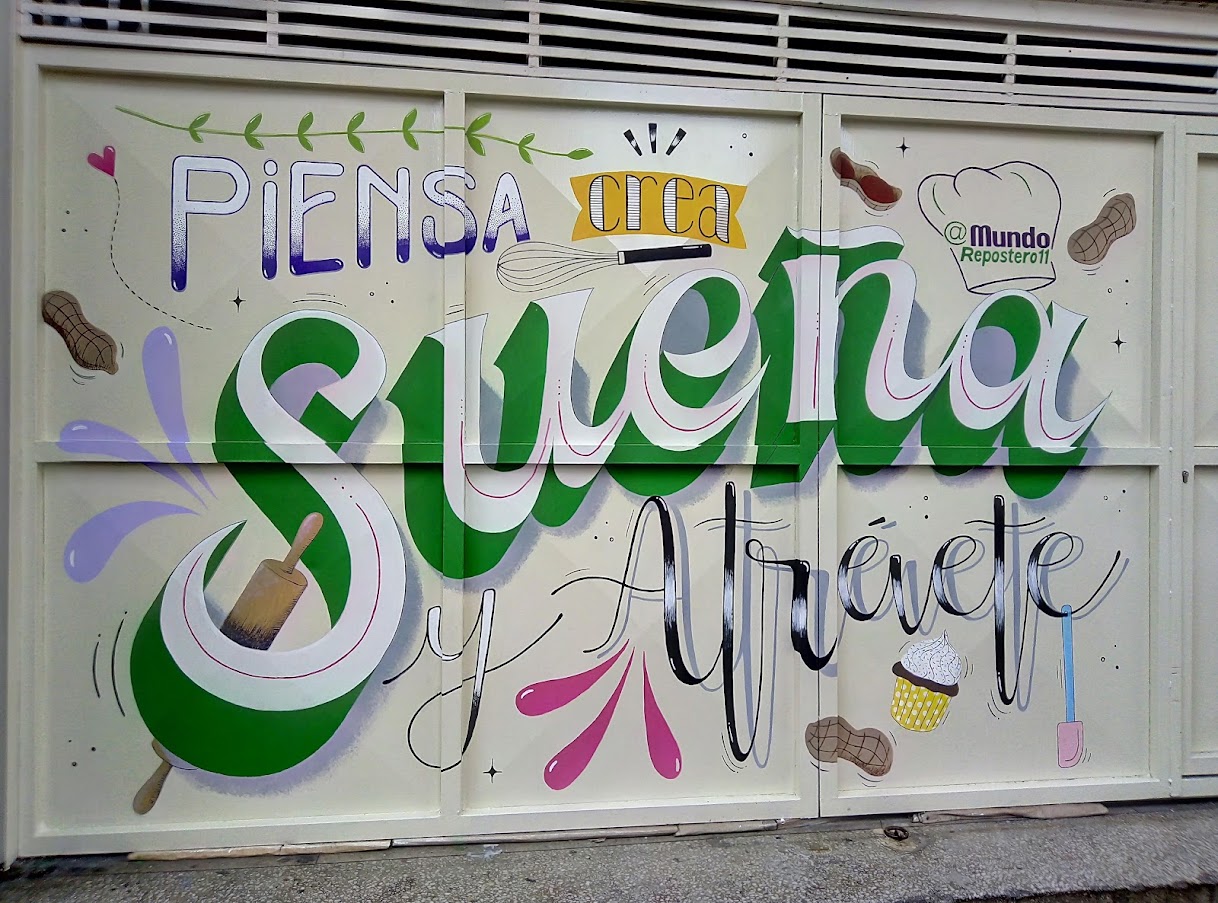 PiENSA crea
@Mundo
Repostero11
Sueña
y Atrévete